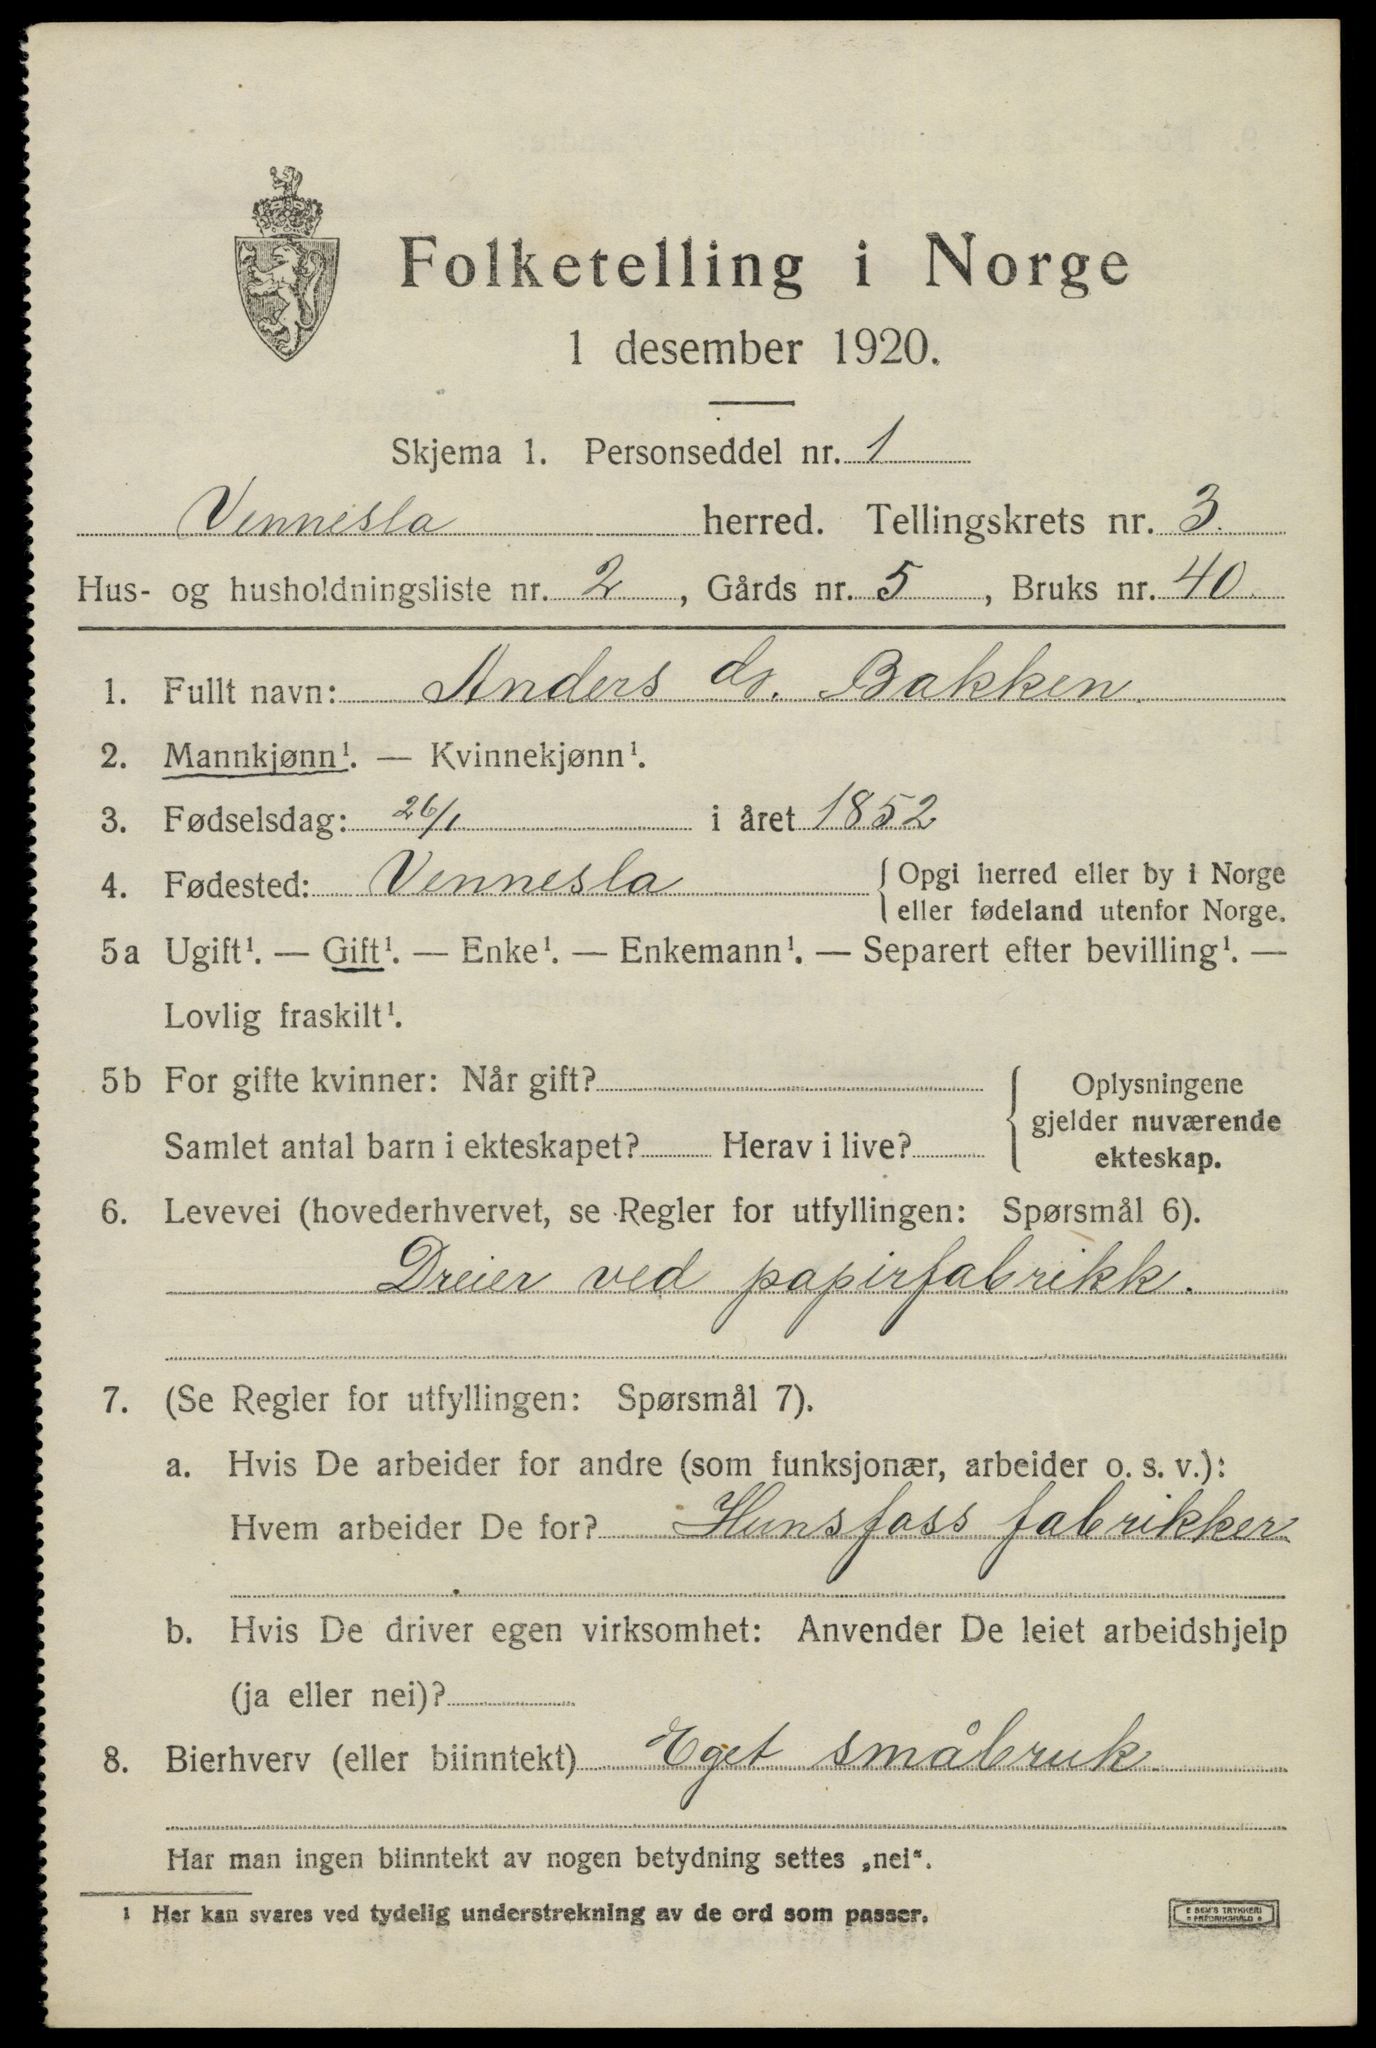 Folketelling i Norge
1 desember 1920.
Skjema 1. Personseddel nr. 1
Vennesla herred. Tellingskrets nr. 3.
Hus- og husholdningsliste nr. 2, Gårds nr. 5, Bruks nr. 40.
1. Fullt navn: Anders Bakken
2. Mannkjønn¹. — Kvinnekjønn¹.
3. Fødselsdag: 26/1 i året 1852
4. Fødested: Vennesla {Opgi herred eller by i Norge
eller fødeland utenfor Norge.
5a Ugift¹. — Gift¹. — Enke¹. — Enkemann¹. — Separert efter bevilling¹. —
Lovlig fraskilt¹.
5b For gifte kvinner: Når gift?
Samlet antal barn i ekteskapet? Herav i live?
Oplysningene
gjelder nuværende
ekteskap.
6. Levevei (hovederhvervet, se Regler for utfyllingen: Spørsmål 6).
Dreier ved papirfabrikk.
7. (Se Regler for utfyllingen: Spørsmål 7).
a. Hvis De arbeider for andre (som funksjonær, arbeider o. s. v.):
Hvem arbeider De for? Hunsfoss fabrikker
b. Hvis De driver egen virksomhet: Anvender De leiet arbeidshjelp
(ja eller nei)?
8. Bierhverv (eller biinntekt) Eget småbruk
Har man ingen biinntekt av nogen betydning settes „nei“.
¹ Her kan svares ved tydelig understrekning av de ord som passer.
E SEM'S TRYKKERI
FREDRIKSHALD